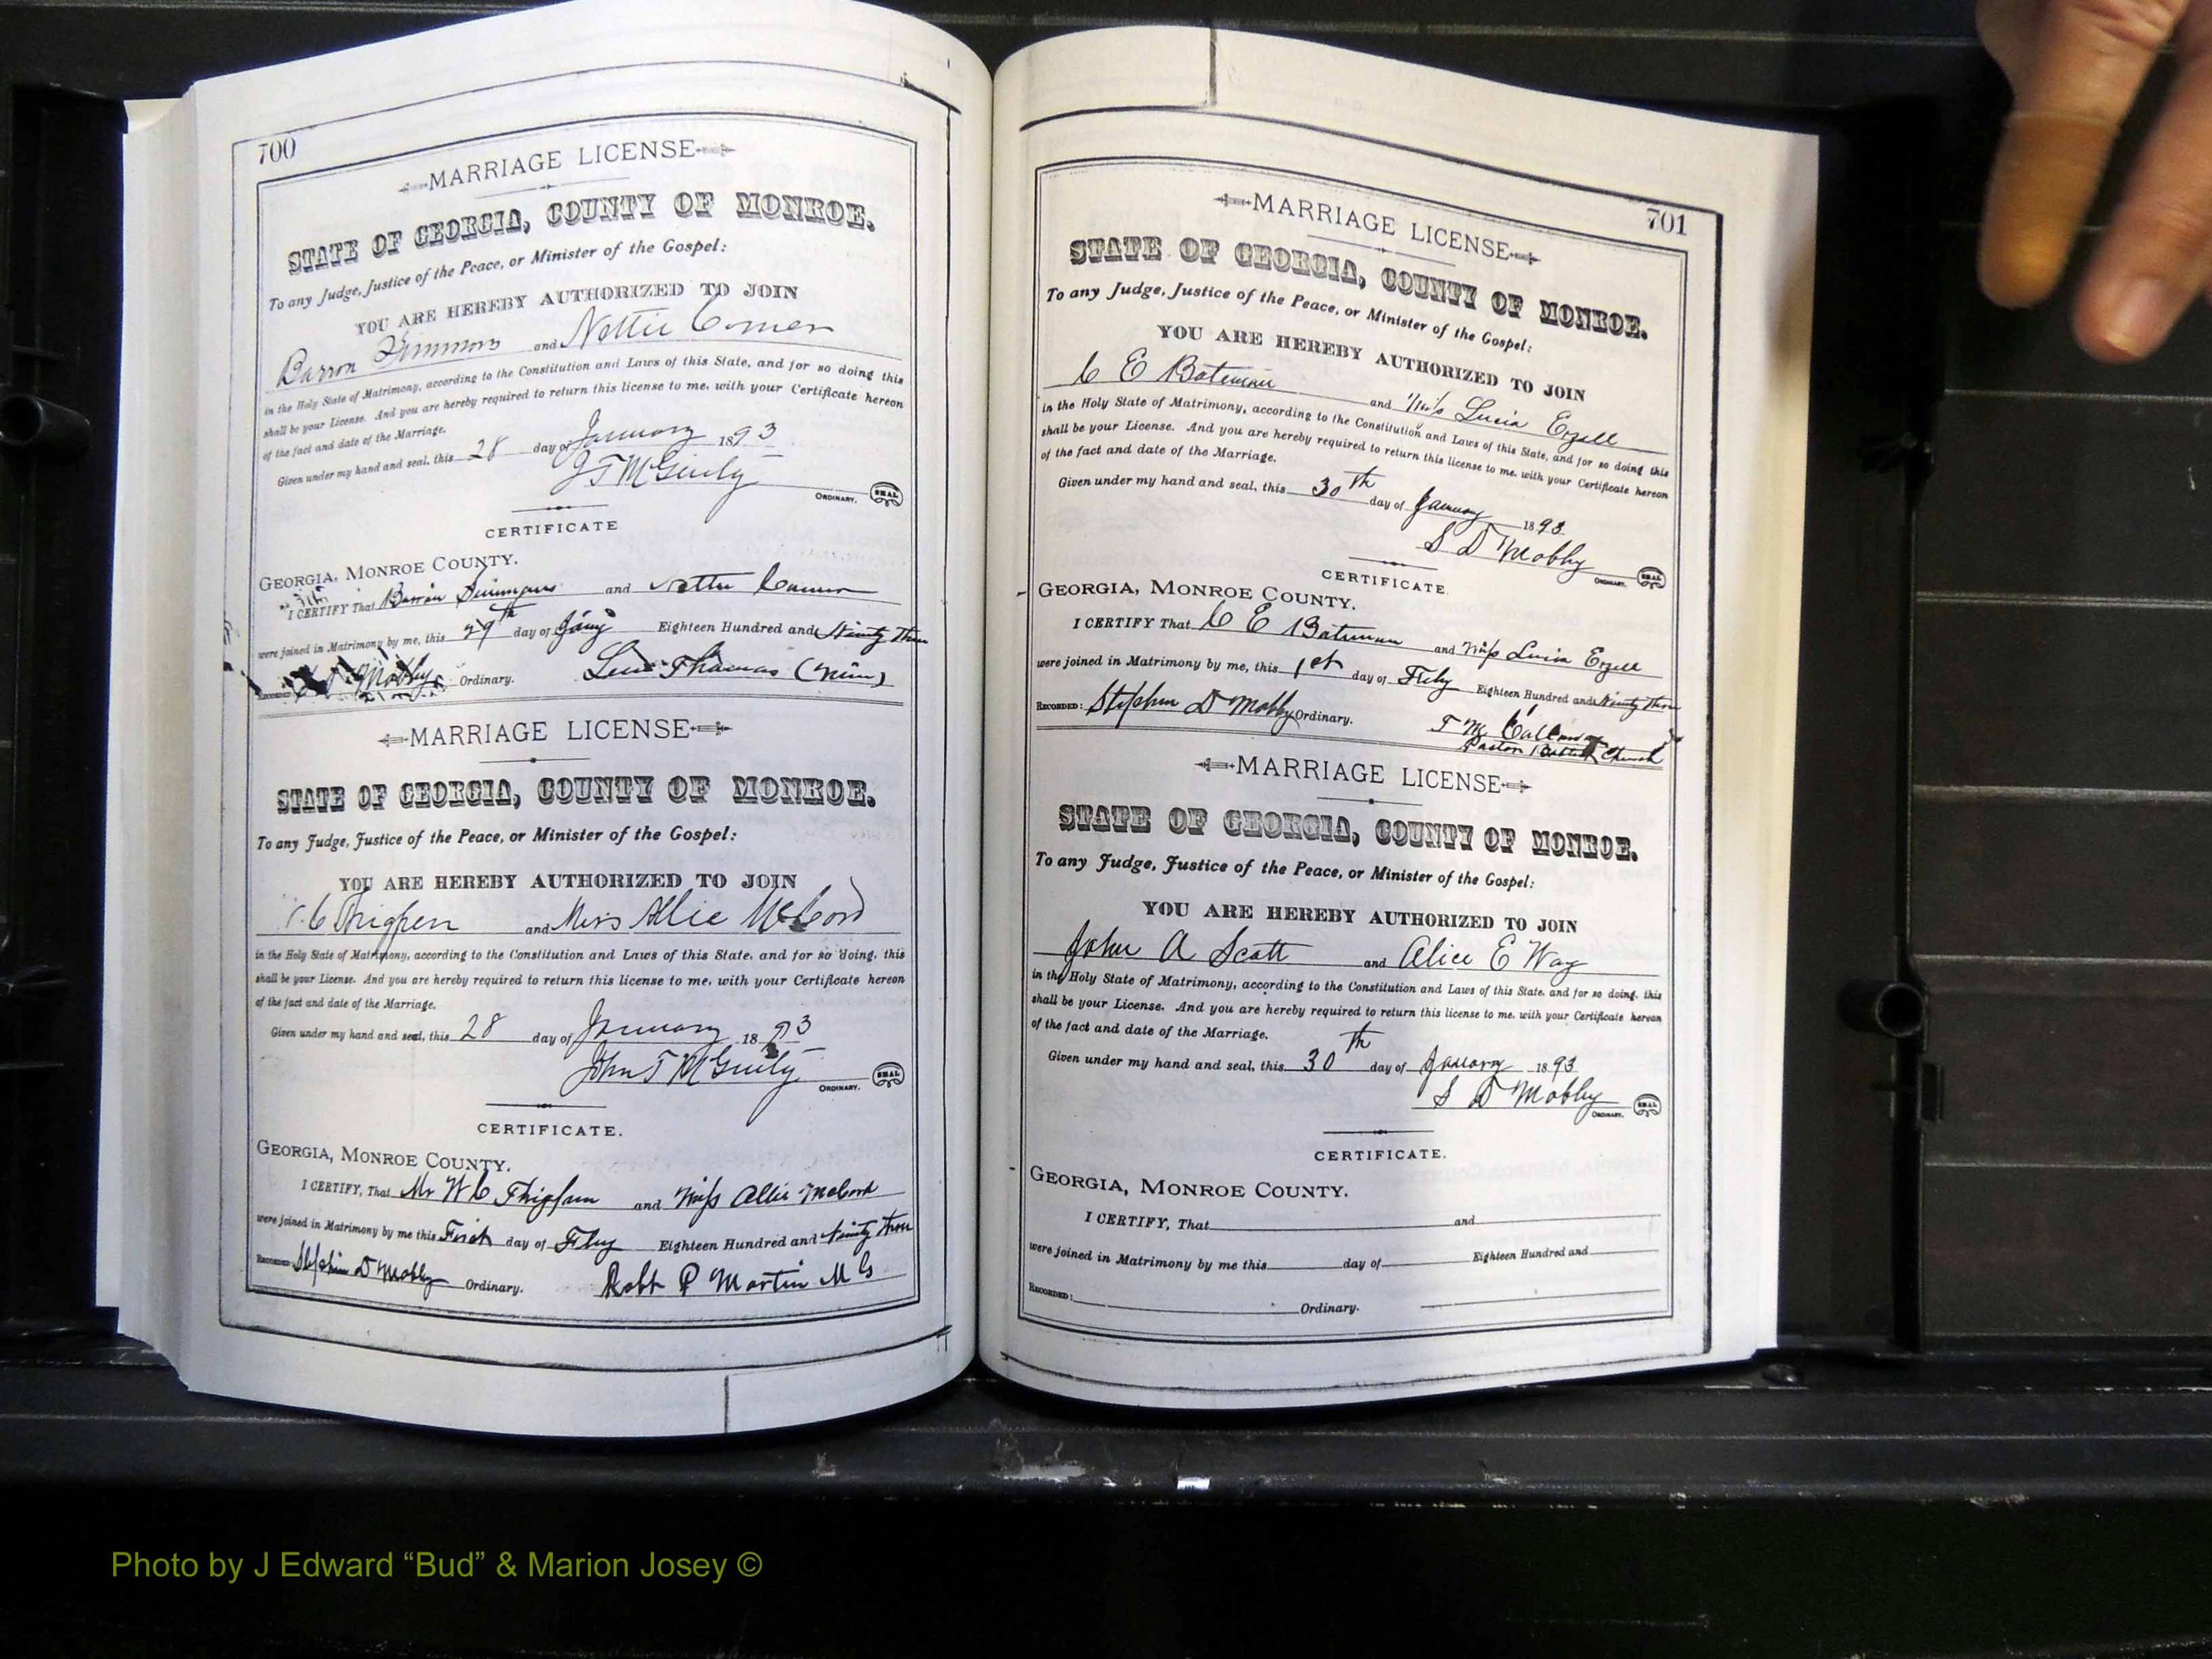 700
MARRIAGE LICENSE
STATE OF GEORGIA, COUNTY OF MONROE.
To any Judge, Justice of the Peace, or Minister of the Gospel:
YOU ARE HEREBY AUTHORIZED TO JOIN
Barron Simmons and Nettie Comer
in the Holy State of Matrimony, according to the Constitution and Laws of this State, and for so doing this
shall be your License. And you are hereby required to return this license to me, with your Certificate hereon
of the fact and date of the Marriage.
Given under my hand and seal, this 28 day of January 1893
J T McGinty
ORDINARY. SEAL
CERTIFICATE
GEORGIA, MONROE COUNTY.
I CERTIFY That Barron Simmons and Nettie Comer
were joined in Matrimony by me, this 29th day of Jany Eighteen Hundred and Ninety Three
RECORDED S D Mobley Ordinary. Thomas (Min)
MARRIAGE LICENSE
STATE OF GEORGIA, COUNTY OF MONROE.
To any Judge, Justice of the Peace, or Minister of the Gospel:
YOU ARE HEREBY AUTHORIZED TO JOIN
C Thigpen and Miss Allie McCord
in the Holy State of Matrimony, according to the Constitution and Laws of this State, and for so doing, this
shall be your License. And you are hereby required to return this license to me, with your Certificate hereon
of the fact and date of the Marriage.
Given under my hand and seal, this 28 day of January 1893
John T McGinty
ORDINARY. SEAL
CERTIFICATE.
GEORGIA, MONROE COUNTY.
I CERTIFY, That Mr W C Thigpen and Miss Allie McCord
were joined in Matrimony by me this First day of Feby Eighteen Hundred and Ninety Three
RECORDED Stephen D Mobley Ordinary. Robt P Martin M G
701
MARRIAGE LICENSE
STATE OF GEORGIA, COUNTY OF MONROE.
To any Judge, Justice of the Peace, or Minister of the Gospel:
YOU ARE HEREBY AUTHORIZED TO JOIN
C E Bateman and Miss Lucia Ezzell
in the Holy State of Matrimony, according to the Constitution and Laws of this State, and for so doing this
shall be your License. And you are hereby required to return this license to me, with your Certificate hereon
of the fact and date of the Marriage.
Given under my hand and seal, this 30th day of January 1893
S D Mobley
ORDINARY. SEAL
CERTIFICATE
GEORGIA, MONROE COUNTY.
I CERTIFY That C E Bateman and Miss Lucia Ezzell
were joined in Matrimony by me, this 1st day of Feby Eighteen Hundred and Ninety Three
RECORDED: Stephen D Mobley Ordinary. T M Callaway
Pastor Baptist Church
MARRIAGE LICENSE
STATE OF GEORGIA, COUNTY OF MONROE.
To any Judge, Justice of the Peace, or Minister of the Gospel:
YOU ARE HEREBY AUTHORIZED TO JOIN
John A Scott and Alice E Way
in the Holy State of Matrimony, according to the Constitution and Laws of this State, and for so doing, this
shall be your License. And you are hereby required to return this license to me, with your Certificate hereon
of the fact and date of the Marriage.
Given under my hand and seal, this 30th day of January 1893
S D Mobley
ORDINARY. SEAL
CERTIFICATE.
GEORGIA, MONROE COUNTY.
I CERTIFY, That and
were joined in Matrimony by me this day of Eighteen Hundred and
RECORDED: Ordinary.
Photo by J Edward “Bud” & Marion Josey ©